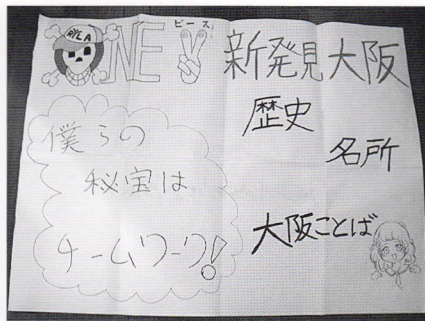 RYLA
ONE ピース
新発見大阪
歴史
名所
大阪ことば
僕らの
秘宝は
チームワーク!